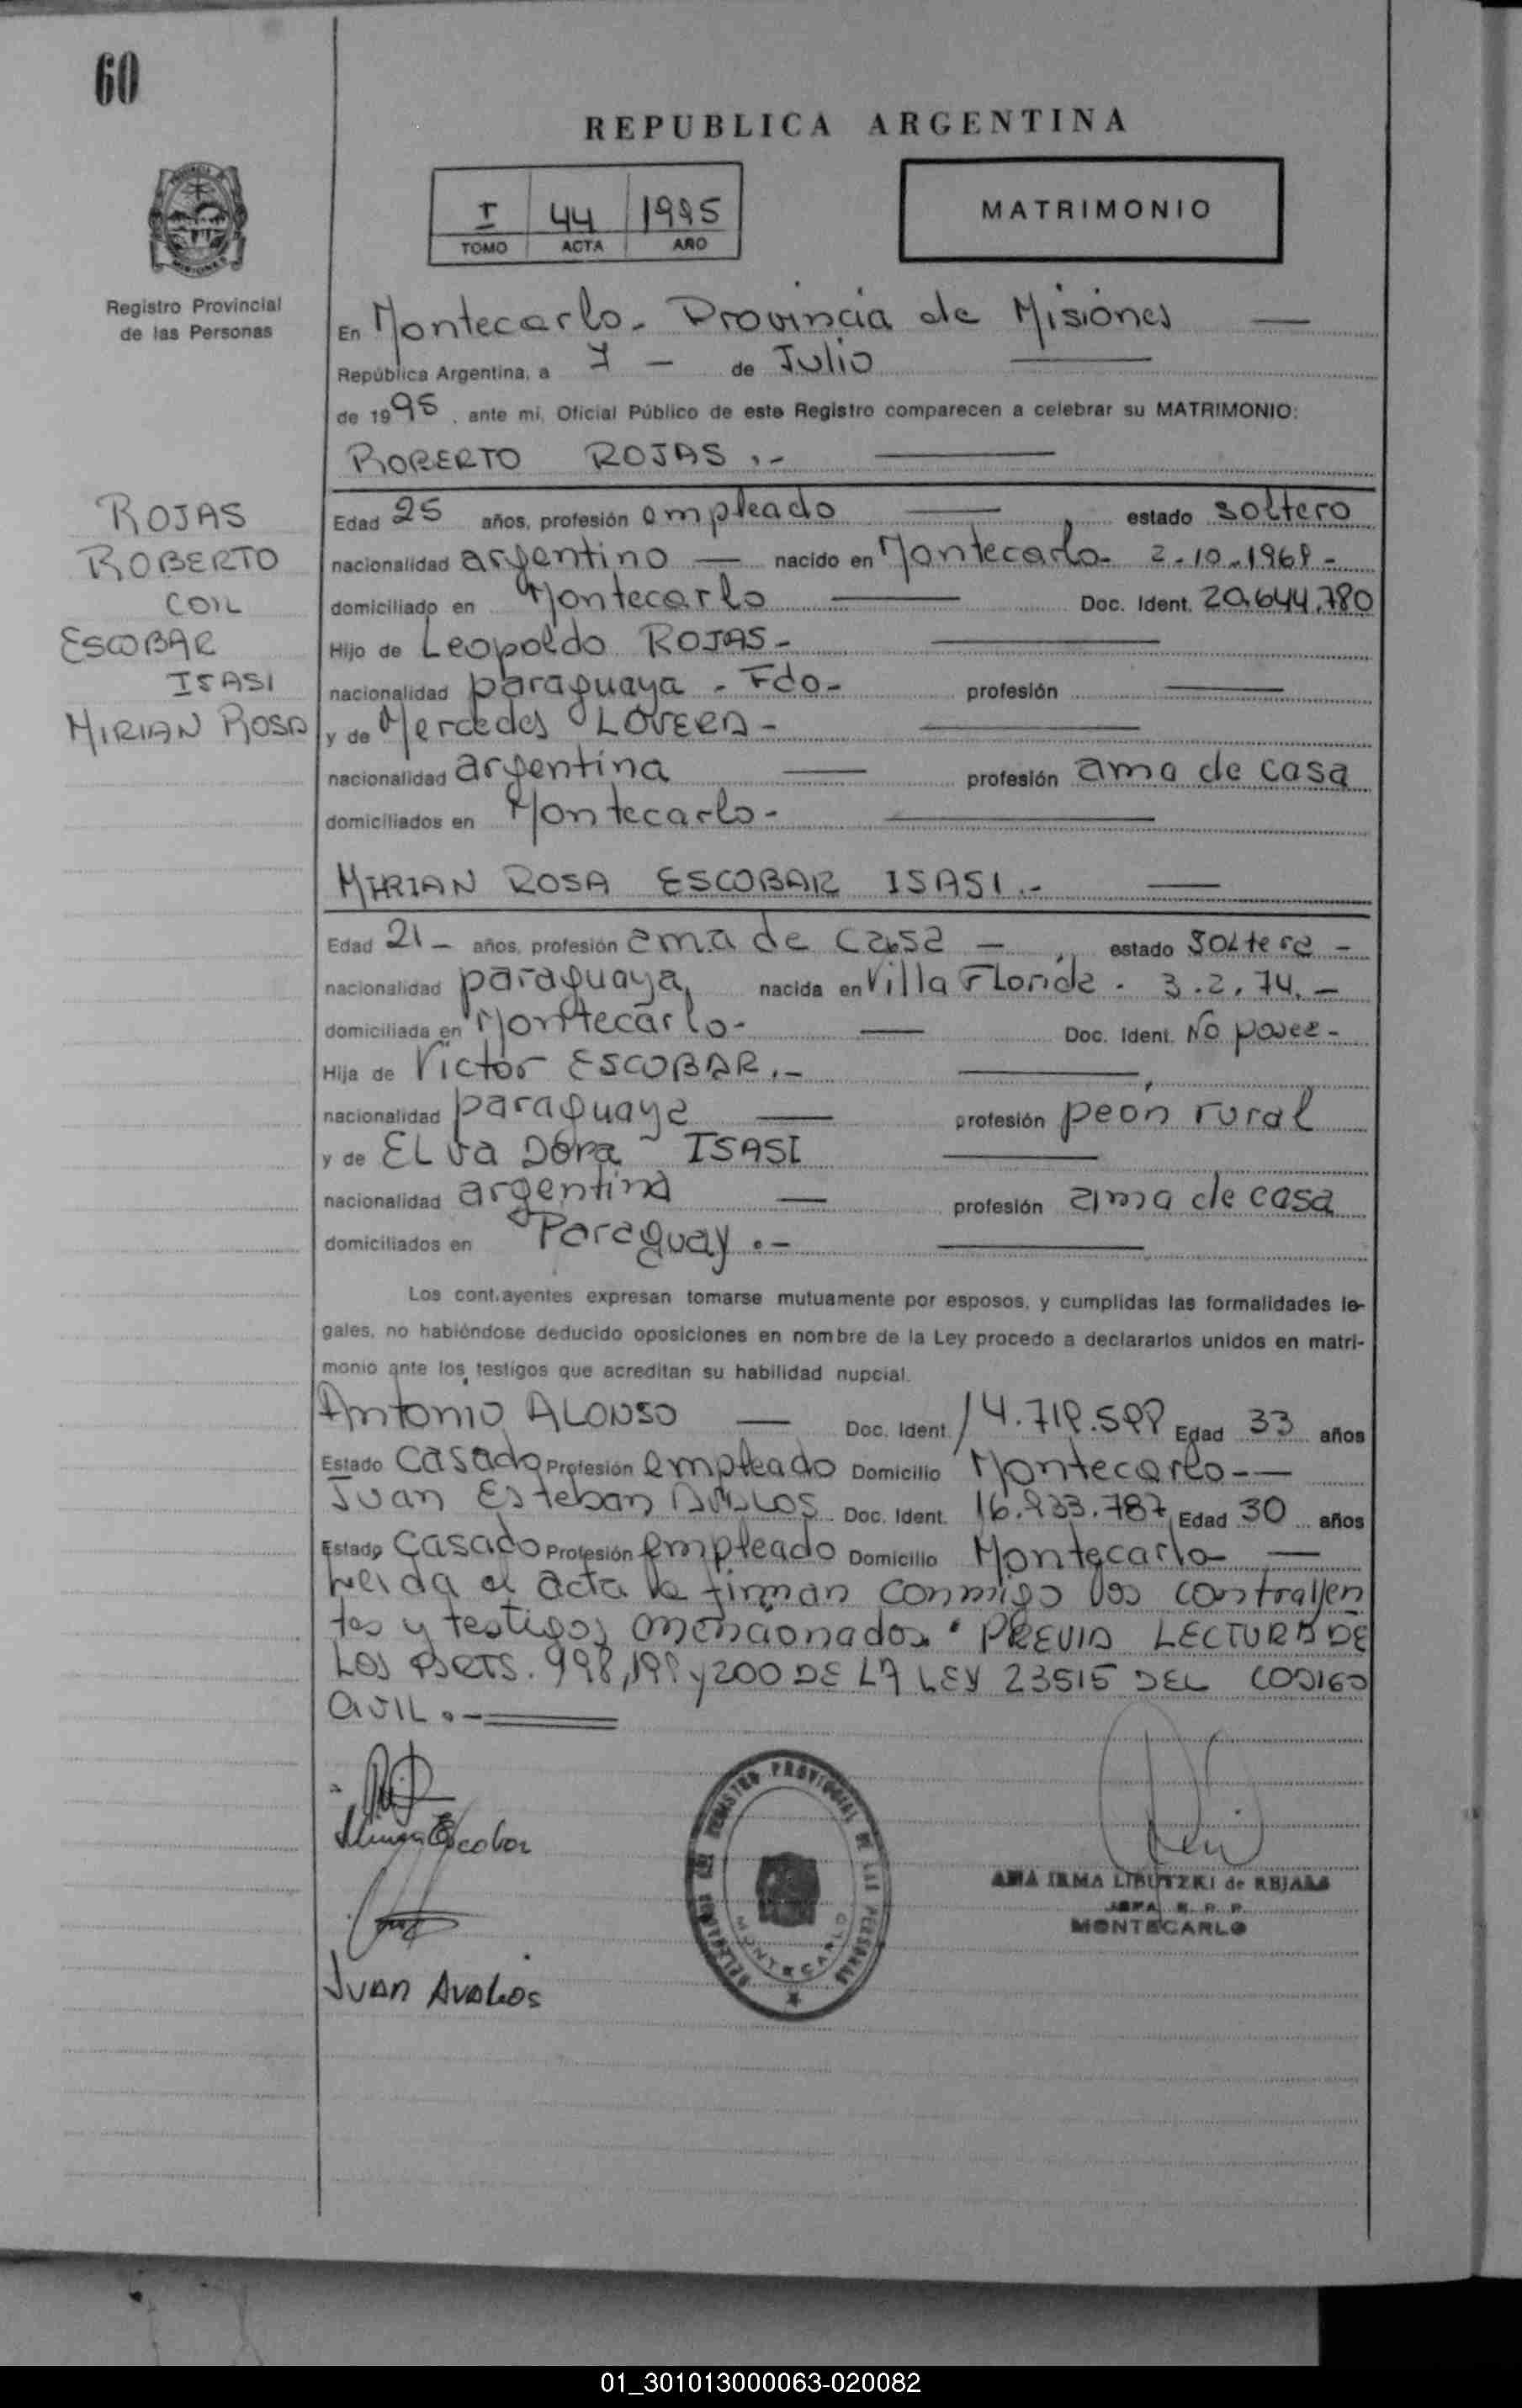 60
REPUBLICA ARGENTINA
I 44 1995
TOMO ACTA AÑO
MATRIMONIO
Registro Provincial
de las Personas
En Montecarlo - Provincia de Misiones —
República Argentina, a 7 — de Julio —
de 1995, ante mi, Oficial Público de este Registro comparecen a celebrar su MATRIMONIO:
ROBERTO ROJAS .-
ROJAS
ROBERTO
CON
ESCOBAR
ISASI
MIRIAN ROSA
Edad 25 años, profesión empleado — , estado soltero
nacionalidad argentino — nacido en Montecarlo - 2-10-1969 -
domiciliado en Montecarlo — Doc. Ident. 20.644.780
Hijo de Leopoldo ROJAS -
nacionalidad paraguaya - Fdo - profesión —
y de Mercedes LOVERA -
nacionalidad argentina — profesión ama de casa
domiciliados en Montecarlo -
MIRIAN ROSA ESCOBAR ISASI .-
Edad 21 - años, profesión ama de casa — , estado soltera -
nacionalidad paraguaya, nacida en Villa Florida - 3.2.74. -
domiciliada en Montecarlo - — Doc. Ident. No posee -
Hija de Victor ESCOBAR .-
nacionalidad paraguaya — profesión peón rural
y de Elva Dora ISASI
nacionalidad argentina — profesión ama de casa
domiciliados en Paraguay .-
Los cont.ayentes expresan tomarse mutuamente por esposos, y cumplidas las formalidades le-
gales, no habiéndose deducido oposiciones en nombre de la Ley procedo a declararlos unidos en matri-
monio ante los testigos que acreditan su habilidad nupcial.
Antonio ALONSO — Doc. Ident. Edad 33 años
Estado casado Profesión empleado Domicilio Montecarlo - —
Juan Esteban AVALOS Doc. Ident. 16.933.787 Edad 30 años
Estado casado Profesión empleado Domicilio Montecarlo - —
Leida el acta la firman conmigo los contrayen
tes y testigos mencionados. PREVIA LECTURA DE
LOS ARTS. 198, 199 y 200 DE LA LEY 23515 DEL CODIGO
CIVIL .-
Escobar
JUAN AVALOS
DELEGACION DEL REGISTRO PROVINCIAL DE LAS PERSONAS
MONTECARLO
ANA IRMA LIBUTZKI de REJALA
JEFA R. P. P.
MONTECARLO
01_301013000063-020082